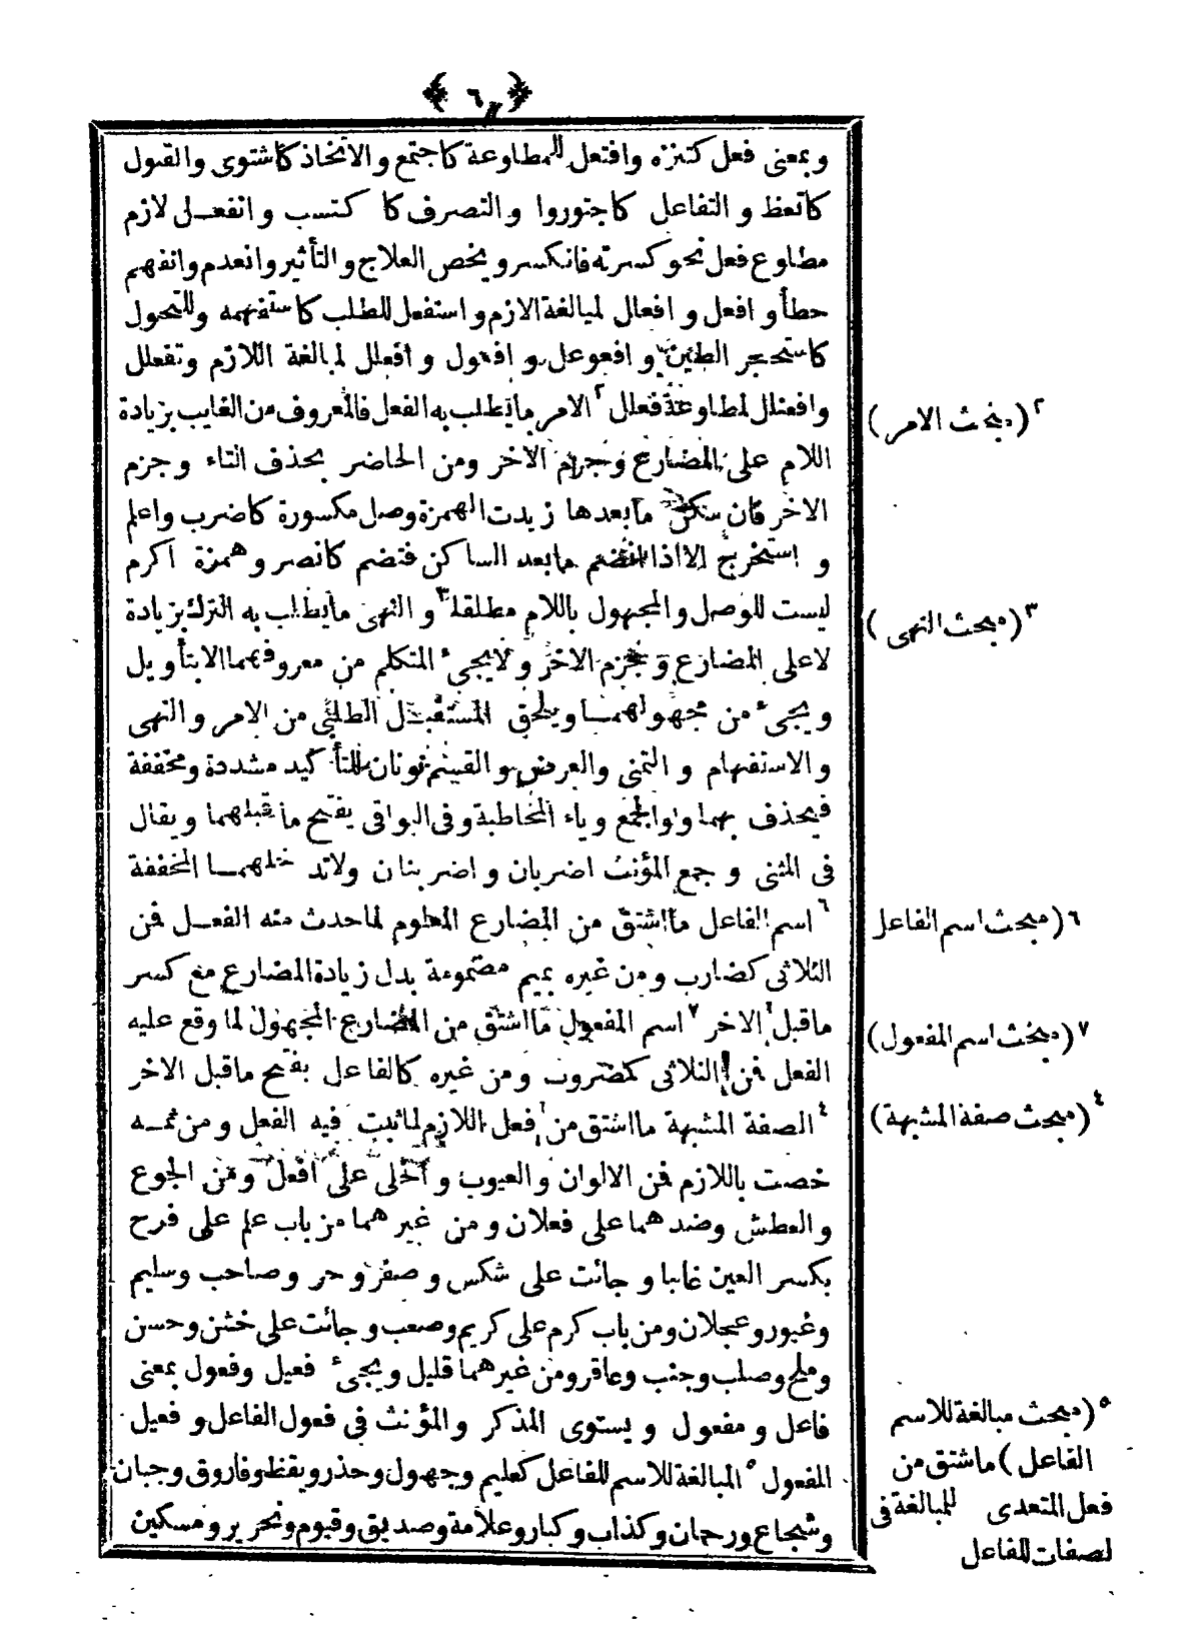 ﴿ ٦ ﴾
و بمعنى فعل كتنزه وافتعل للمطاوعة كاجتمع والاتخاذ كاشتوى والقبول
كاتعظ و التفاعل كاجتوروا والتصرف كا كتسب وانفعل لازم
مطاوع فعل نحو كسرته فانكسر ويخص العلاج والتأثير وانعدم وانفهم
خطأ و افعل و افعال لمبالغة الازم و استفعل للطلب كاستفهمه وللتحول
كاستحجر الطين و افعوعل و افعول و افعلل لمبالغة اللازم وتفعلل
وافعنلل لمطاوعة فعلل ٢ الامر ما يطلب به الفعل فالمعروف من الغايب بزيادة
اللام على المضارع وجزم الآخر ومن الحاضر بحذف التاء وجزم
الاخر فان سكن ما بعدها زيدت الهمزة وصل مكسورة كاضرب واعلم
و استخرج الا اذا انضم ما بعد الساكن فتضم كانصر وهمزة اكرم
ليست للوصل والمجهول باللام مطلقا ٣ و النهى ما يطلب به الترك بزيادة
لا على المضارع و يجزم الاخر ولا يجىء المتكلم من معروفهما الا بتأويل
ويجىء من مجهولهما ويلحق المستقبل الطلبى من الامر والنهى
والاستفهام و التمنى والعرض و القسم نونان للتأكيد مشددة ومخففة
فيحذف بهما واو الجمع وياء المخاطبة وفى البواقى يفتح ما قبلهما ويقال
فى المثنى و جمع المؤنث اضربان و اضربنان ولا تدخلهما المخففة
٦ اسم الفاعل ما اشتق من المضارع المعلوم لما حدث منه الفعل فمن
الثلاثى كضارب ومن غيره بميم مضمومة بدل زيادة المضارع مع كسر
ماقبل الاخر ٧ اسم المفعول ما اشتق من المضارع المجهول لما وقع عليه
الفعل فمن الثلاثى كمضروب ومن غيره كالفاعل بفتح ماقبل الاخر
٤ الصفة المشبهة ما اشتق من فعل اللازم لما ثبت فيه الفعل ومن ثمه
خصت باللازم فمن الالوان والعيوب و الحلى على افعل ومن الجوع
والعطش وضدهما على فعلان و من غيرهما من باب علم على فرح
بكسر العين غالبا و جائت على شكس و صفر و حر و صاحب وسليم
وغيور وعجلان ومن باب كرم على كريم وصعب و جائت على خشن وحسن
وملح وصلب وجنب وعاقر ومن غيرهما قليل ويجىء فعيل وفعول بمعنى
فاعل و مفعول و يستوى المذكر والمؤنث فى فعول الفاعل و فعيل
المفعول ٥ المبالغة للاسم للفاعل كعليم وجهول وحذر ويقظ وفاروق وجبان
وشجاع ورحمان وكذاب وكبار وعلامة وصديق وقيوم ونحرير ومسكين
٢ (مبحث الامر)
٣ (مبحث النهى)
٦ (مبحث اسم الفاعل
٧ (مبحث اسم المفعول)
٤ (مبحث صفة المشبهة)
٥ (مبحث مبالغة للاسم
الفاعل) ما شتق من
فعل المتعدى للمبالغة فى
لصفات للفاعل